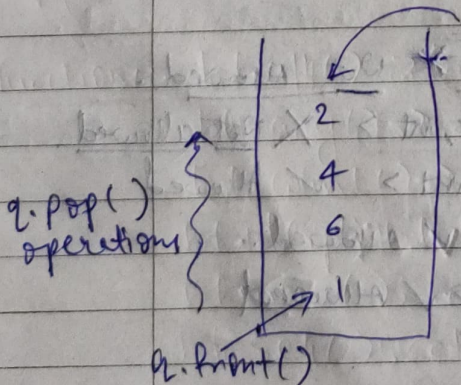 2
4
q.pop()
operations
6
1
q.front()